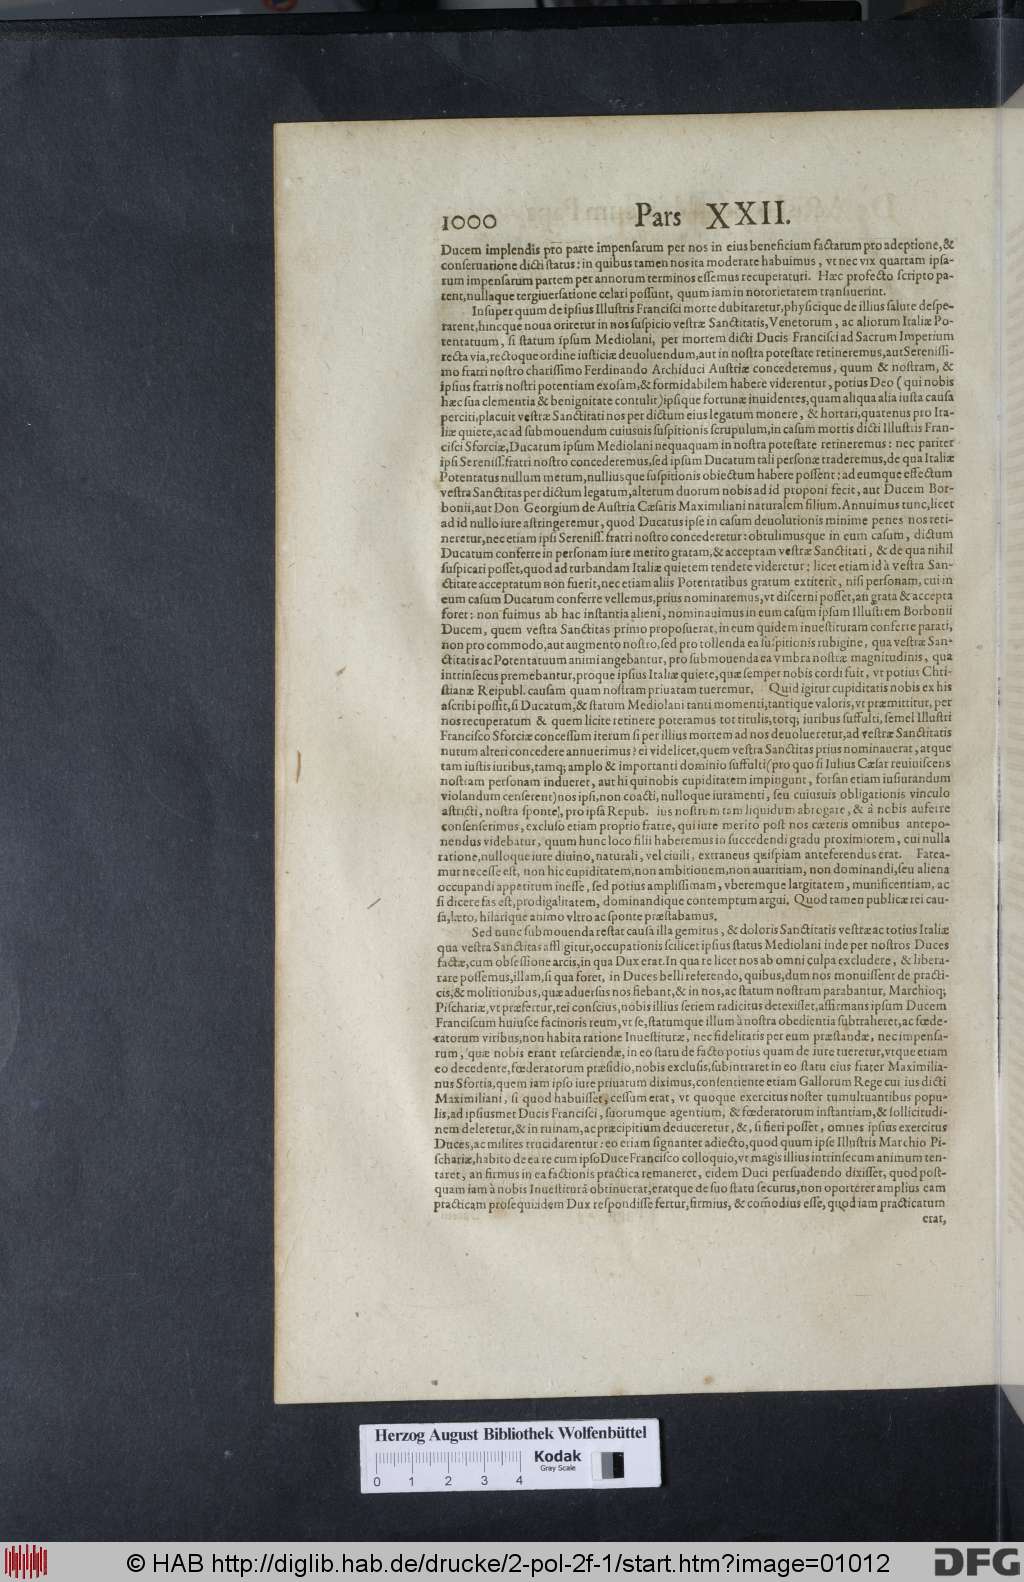 1000 Pars XXII.
Ducem implendis pro parte impensarum per nos in eius beneficium factarum pro adeptione, &
conseruatione dicti status: in quibus tamen nos ita moderate habuimus, vt nec vix quartam ipsa-
rum impensarum partem per annorum terminos essemus recuperaturi. Hæc profecto scripto pa-
tent, nullaque tergiuersatione celari possunt, quum iam in notorietatem transiuerint.
Insuper quum de ipsius Illustris Francisci morte dubitaretur, physicique de illius salute despe-
rarent, hincque noua oriretur in nos suspicio vestræ Sanctitatis, Venetorum, ac aliorum Italiæ Po-
tentatuum, si statum ipsum Mediolani, per mortem dicti Ducis Francisci ad Sacrum Imperium
recta via, rectoque ordine iusticiæ deuoluendum, aut in nostra potestate retineremus, aut Serenissi-
mo fratri nostro charissimo Ferdinando Archiduci Austriæ concederemus, quum & nostram, &
ipsius fratris nostri potentiam exosam, & formidabilem habere viderentur, potius Deo (qui nobis
hæc sua clementia & benignitate contulit) ipsique fortunæ inuidentes, quam aliqua alia iusta causa
perciti, placuit vestræ Sanctitati nos per dictum eius legatum monere, & hortari, quatenus pro Ita-
liæ quiete, ac ad submouendum cuiusuis suspitionis scrupulum, in casum mortis dicti Illustris Fran-
cisci Sforciæ, Ducatum ipsum Mediolani nequaquam in nostra potestate retineremus: nec pariter
ipsi Sereniss. fratri nostro concederemus, sed ipsum Ducatum tali personæ traderemus, de qua Italiæ
Potentatus nullum metum, nulliusque suspitionis obiectum habere possent: ad eumque effectum
vestra Sanctitas per dictum legatum, alterum duorum nobis ad id proponi fecit, aut Ducem Bor-
bonii, aut Don Georgium de Austria Cæsaris Maximiliani naturalem filium. Annuimus tunc, licet
ad id nullo iure astringeremur, quod Ducatus ipse in casum deuolutionis minime penes nos reti-
neretur, nec etiam ipsi Sereniss. fratri nostro concederetur: obtulimusque in eum casum, dictum
Ducatum conferre in personam iure merito gratam, & acceptam vestræ Sanctitati, & de qua nihil
suspicari posset, quod ad turbandam Italiæ quietem tendere videretur: licet etiam id à vestra San-
ctitate acceptatum non fuerit, nec etiam aliis Potentatibus gratum extiterit, nisi personam, cui in
eum casum Ducatum conferre vellemus, prius nominaremus, vt discerni posset, an grata & accepta
foret: non fuimus ab hac instantia alieni, nominauimus in eum casum ipsum Illustrem Borbonii
Ducem, quem vestra Sanctitas primo proposuerat, in eum quidem inuestituram conferre parati,
non pro commodo, aut augmento nostro, sed pro tollenda ea suspitionis rubigine, qua vestræ San-
ctitatis ac Potentatuum animi angebantur, pro submouenda ea vmbra nostræ magnitudinis, qua
intrinsecus premebantur, proque ipsius Italiæ quiete, quæ semper nobis cordi fuit, vt potius Chri-
stianæ Reipubl. causam quam nostram priuatam tueremur. Quid igitur cupiditatis nobis ex his
ascribi possit, si Ducatum, & statum Mediolani tanti momenti, tantique valoris, vt præmittitur, per
nos recuperatum & quem licite retinere poteramus tot titulis, totq; iuribus suffulti, semel Illustri
Francisco Sforciæ concessum iterum si per illius mortem ad nos deuolueretur, ad vestræ Sanctitatis
nutum alteri concedere annuerimus? ei videlicet, quem vestra Sanctitas prius nominauerat, atque
tam iustis iuribus, tamq; amplo & importanti dominio suffulti (pro quo si Iulius Cæsar reuiuiscens
nostram personam indueret, aut hi qui nobis cupiditatem impingunt, forsan etiam iusiurandum
violandum censerent) nos ipsi, non coacti, nulloque iuramenti, seu cuiusuis obligationis vinculo
astricti, nostra sponte, pro ipsa Repub. ius nostrum tam liquidum abrogare, & à nobis auferre
consenserimus, excluso etiam proprio fratre, qui iure merito post nos cæteris omnibus antepo-
nendus videbatur, quum hunc loco filii haberemus in succedendi gradu proximiorem, cui nulla
ratione, nulloque iure diuino, naturali, vel ciuili, extraneus quispiam anteferendus erat. Fatea-
mur necesse est, non hic cupiditatem, non ambitionem, non auaritiam, non dominandi, seu aliena
occupandi appetitum inesse, sed potius amplissimam, vberemque largitatem, munificentiam, ac
si dicere fas est, prodigalitatem, dominandique contemptum argui. Quod tamen publicæ rei cau-
sa, læto, hilarique animo vltro ac sponte præstabamus.
Sed nunc submouenda restat causa illa gemitus, & doloris Sanctitatis vestræ ac totius Italiæ
qua vestra Sanctitas affligitur, occupationis scilicet ipsius status Mediolani inde per nostros Duces
factæ, cum obsessione arcis, in qua Dux erat. In qua re licet nos ab omni culpa excludere, & libera-
rare possemus, illam, si qua foret, in Duces belli referendo, quibus, dum nos monuissent de practi-
cis, & molitionibus, quæ aduersus nos fiebant, & in nos, ac statum nostrum parabantur, Marchioq;
Pischariæ, vt præfertur, rei conscius, nobis illius seriem radicitus detexisset, affirmans ipsum Ducem
Franciscum huiusce facinoris reum, vt se, statumque illum à nostra obedientia subtraheret, ac fœde-
ratorum viribus, non habita ratione Inuestituræ, nec fidelitatis per eum præstandæ, nec impensa-
rum, quæ nobis erant resarciendæ, in eo statu de facto potius quam de iure tueretur, vtque etiam
eo decedente, fœderatorum præsidio, nobis exclusis, subintraret in eo statu eius frater Maximilia-
nus Sfortia, quem iam ipso iure priuatum diximus, consentiente etiam Gallorum Rege cui ius dicti
Maximiliani, si quod habuisset, cessum erat, vt quoque exercitus noster tumultuantibus popu-
lis, ad ipsiusmet Ducis Francisci, suorumque agentium, & fœderatorum instantiam, & sollicitudi-
nem deleretur, & in ruinam, ac præcipitium deduceretur, &, si fieri posset, omnes ipsius exercitus
Duces, ac milites trucidarentur: eo etiam signanter adiecto, quod quum ipse Illustris Marchio Pi-
schariæ, habito de ea re cum ipso Duce Francisco colloquio, vt magis illius intrinsecum animum ten-
taret, an firmus in ea factionis practica remaneret, eidem Duci persuadendo dixisset, quod post-
quam iam à nobis Inuestiturā obtinuerat, eratque de suo statu securus, non oporteret amplius eam
practicam prosequi: idem Dux respondisse fertur, firmius, & comodius esse, quod iam practicatum
erat,
Herzog August Bibliothek Wolfenbüttel
Kodak
Gray Scale
0 1 2 3 4
© HAB http://diglib.hab.de/drucke/2-pol-2f-1/start.htm?image=01012
DFG